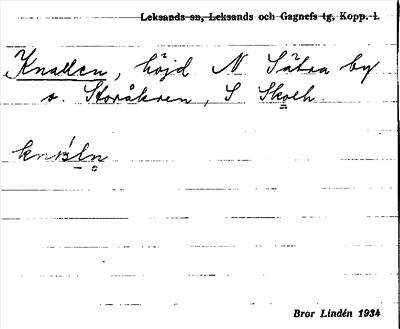 Leksands sn, Leksands och Gagnefs tg, Kopp. l.
Knallen, höjd N Sätra by
o. Storåkren, S Skoch.
Bror Lindén 1934